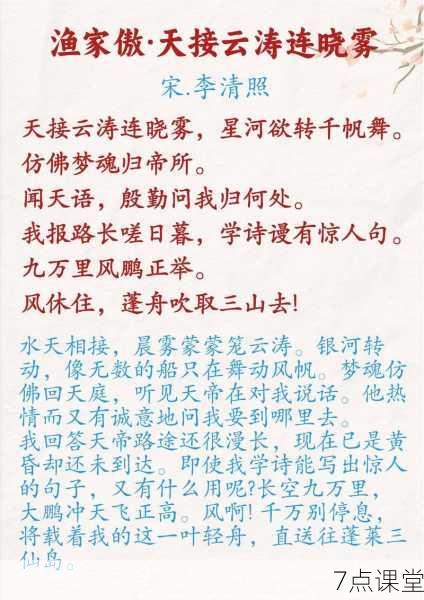 渔家傲·天接云涛连晓雾
宋.李清照
天接云涛连晓雾，星河欲转千帆舞。
仿佛梦魂归帝所。
闻天语，殷勤问我归何处。
我报路长嗟日暮，学诗谩有惊人句。
九万里风鹏正举。
风休住，蓬舟吹取三山去!
水天相接，晨雾蒙蒙笼云涛。银河转
动，像无数的船只在舞动风帆。梦魂仿
佛回天庭，听见天帝在对我说话。他热
情而又有诚意地问我要到哪里去。
我回答天帝路途还很漫长，现在已是黄
昏却还未到达。即使我学诗能写出惊人
的句子，又有什么用呢?长空九万里，
大鹏冲天飞正高。风啊! 千万别停息，
将载着我的这一叶轻舟，直送往蓬莱三
仙岛。
7点课堂